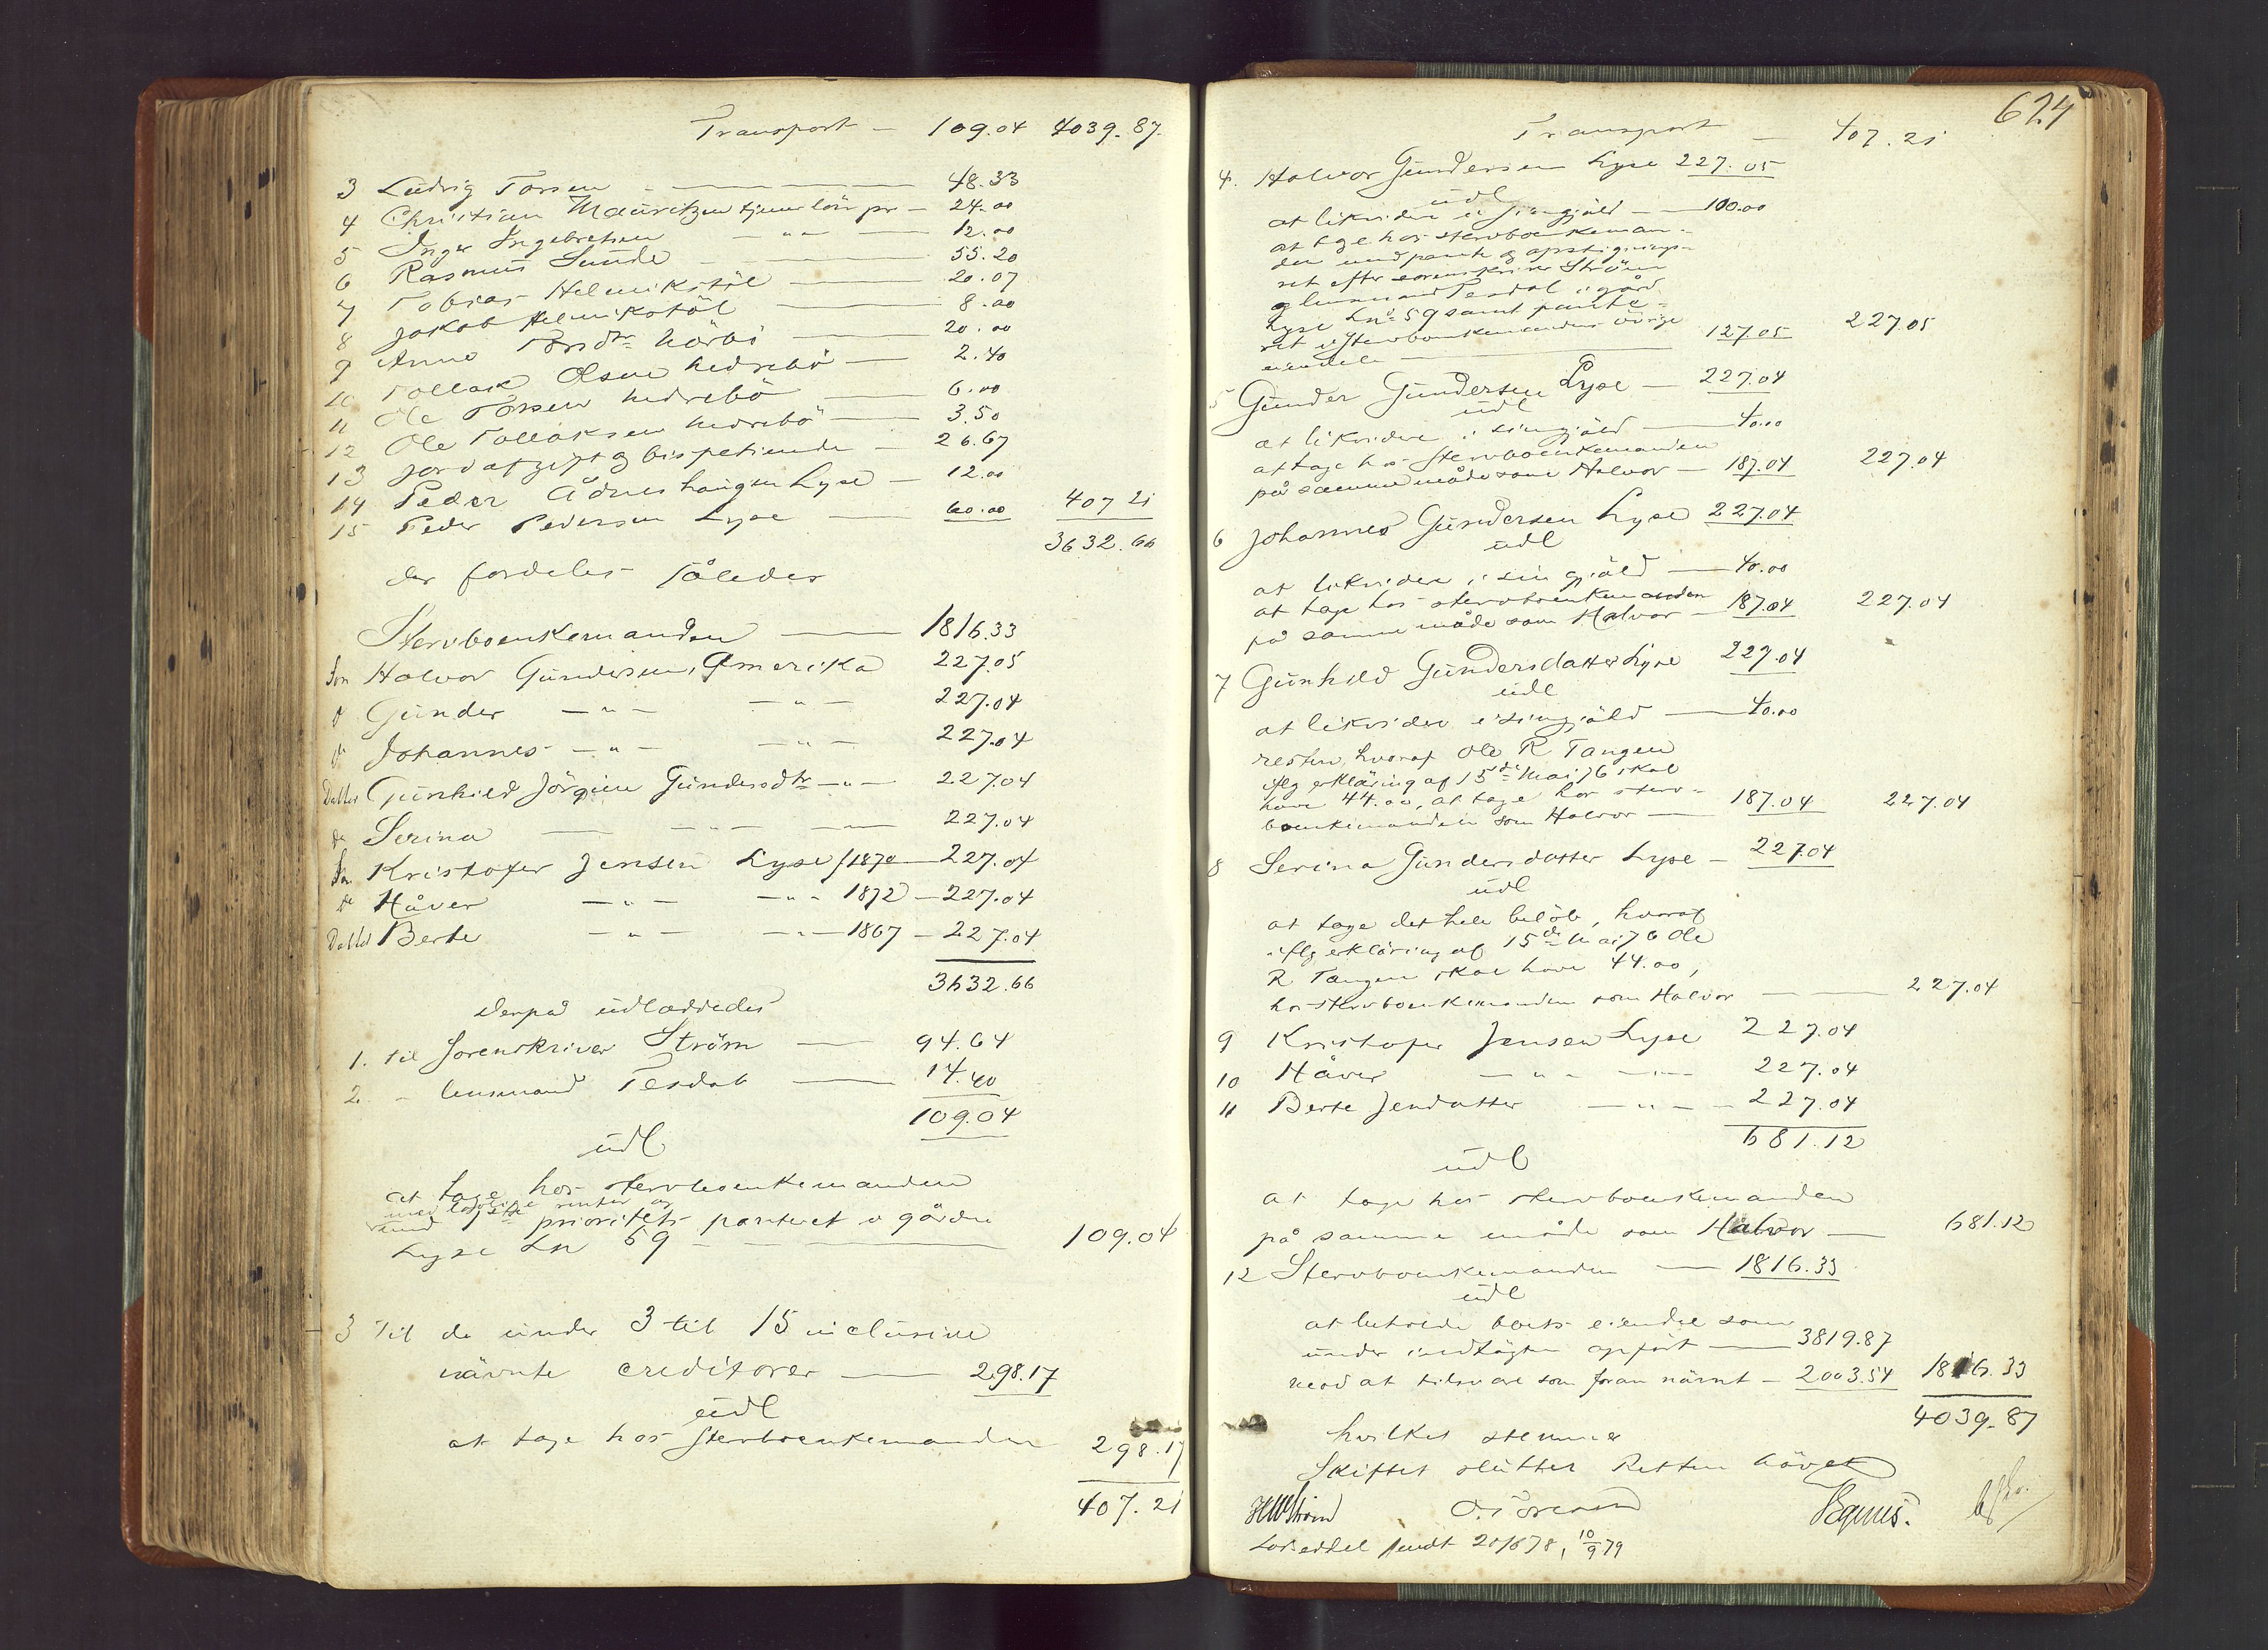 Transport — 109.04 4039.87.
3 Ludvig Torsen — 48.33
4 Christian Mauritzen tjenerlön pr — 24.00
5 Inger Ingebretsen — „ — 12.00
6 Rasmus Sunde — 55.20
7 Tobias Helmikstöl — 20.07
8 Jakob Helmikstöl — 8.00
9 Anne Torsdtr — 20.00
10 Tollak Olsen Nedrebö — 2.40
11 Ole Torsen Nedrebö — 6.00
12 Ole Tollaksen Nedrebö — 3.50
13 Jordafgift og bispetiende — 26.67
14 Peder Ådneshaugen Lyse — 12.00
15 Peder Pedersen Lyse — 60.00 407 21
3632.66
der fordeles således
Stervboenkemanden — 1816.33
Søn Halvor Gundersen, Amerika 227.05
do Gunder — „ — — „ — 227.04
do Johannes — „ — — „ — 227.04
Datter Gunhild Jörgine Gundersdtr — „ — 227.04
do Serina — „ — 227.04
Søn Kristofer Jensen Lyse f 1870 — 227.04
do Håver — „ — — „ — 1872 — 227.04
Datter Berte — „ — — „ — 1867 — 227.04
3632.66
Derpå udlagdes
1. til Sorenskriver Ström — 94.64
2. - lensmand Tesdal — 14.40
109.04
udl
at tage hos stervboenkemanden
med lovlige renter og
med 1ste prioritets panteret i gården
Lyse Ln 59 — 109.04
3 Til de under 3 til 15 inclusive
nävnte creditorer — 298.17
udl
at tage hos Stervboenkemanden 298.17
407.21
624
Transport — 407.21
4. Halvor Gundersen Lyse 227.05
udl
at likvidere i sin gjäld — 100.00
at tage hos stervboenkeman-
den med pante og opstignings-
ret efter sorenskriver Ström
og lensmand Tesdal i gård
Lyse Ln 59 samt pante-
ret i stervboenkemandens övrige
eiendele — 127.05 227.05
5 Gunder Gundersen Lyse — 227.04
udl
at likvidere i sin gjäld — 40.00
at tage hos Stervboenkemanden
på samme måde som Halvor — 187.04 227.04
6 Johannes Gundersen Lyse 227.04
udl
at likvidere i sin gjäld — 40.00
at tage hos stervboenkemanden
på samme måde som Halvor — 187.04 227.04
7 Gunhild Gundersdatter Lyse 227.04
udl
at likvidere i sin gjäld — 40.00
resten, hvoraf Ole R Tangen
iflg erkläring af 15de Mai 76 skal
have 44.00, at tage hos sterv-
boenkemanden som Halvor — 187.04 227.04
8 Serina Gundersdatter Lyse — 227.04
udl
at tage det hele belöb, hvoraf
iflg erkläring af 15de Mai 76 Ole
R Tangen skal have 44.00,
hos stervboenkemanden som Halvor — 227.04
9 Kristofer Jensen Lyse 227.04
10 Håver — „ — — „ — 227.04
11 Berte Jensdatter — „ — 227.04
681.12
udl
at tage hos stervboenkemanden
på samme måde som Halvor — 681.12
12 Stervboenkemanden — 1816.33
udl
at beholde boets eiendele som
under indtägten opfört — 3819.87
mod at tilsvare som foran nävnt — 2003.54 1816.33
4039.87
hvilket stemmer
Skiftet sluttet Retten hävet
HWStröm
Lodseddel sendt 20/6 78, 10/9 79